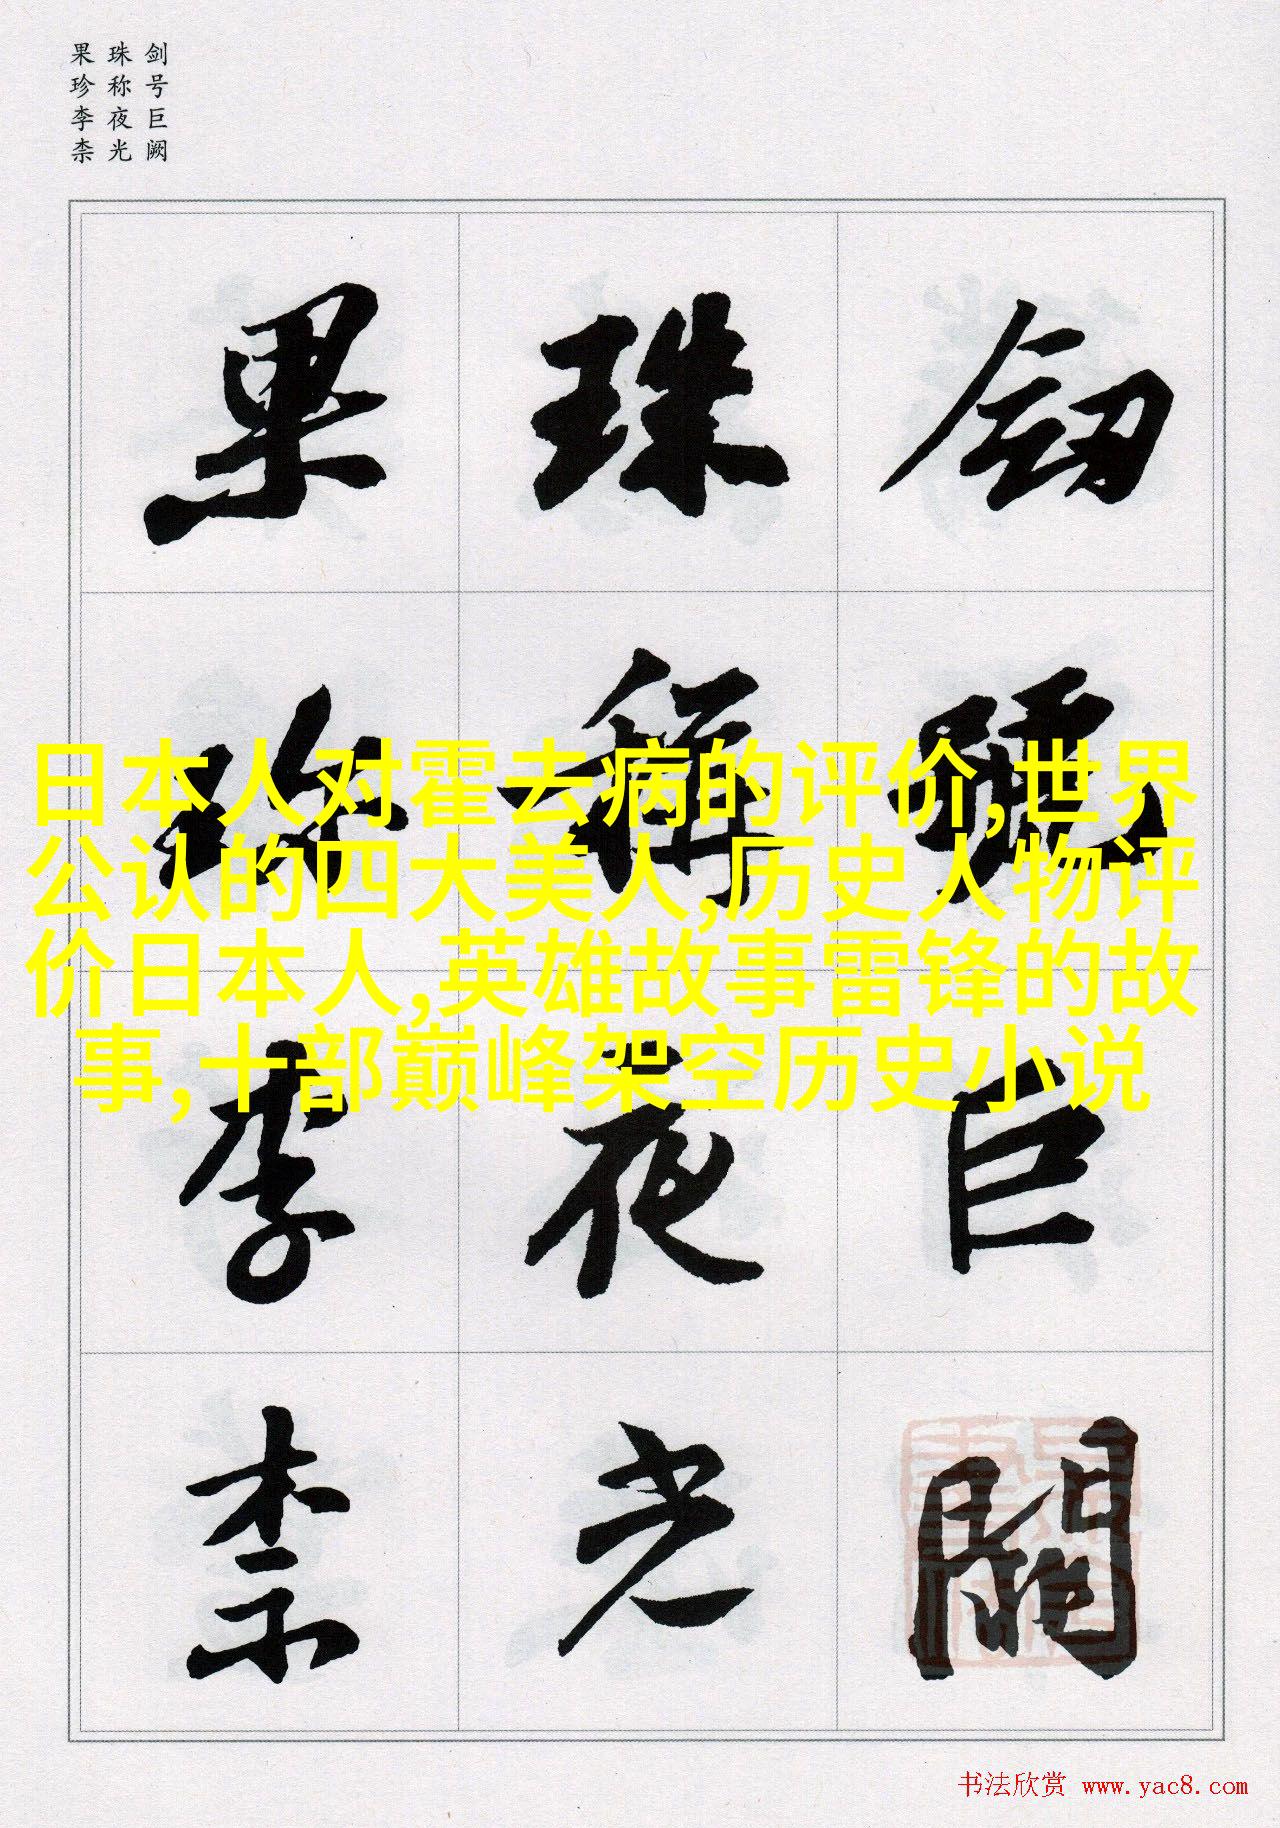 剑号巨阙
珠称夜光
果珍李柰
劒號巨闕
珠稱夜光
果珍李柰
日本人对霍去病的评价,世界
公认的四大美人,历史人物评
价日本人,英雄故事雷锋的故
事,十部巅峰架空历史小说
书法欣赏 www.yac8.com